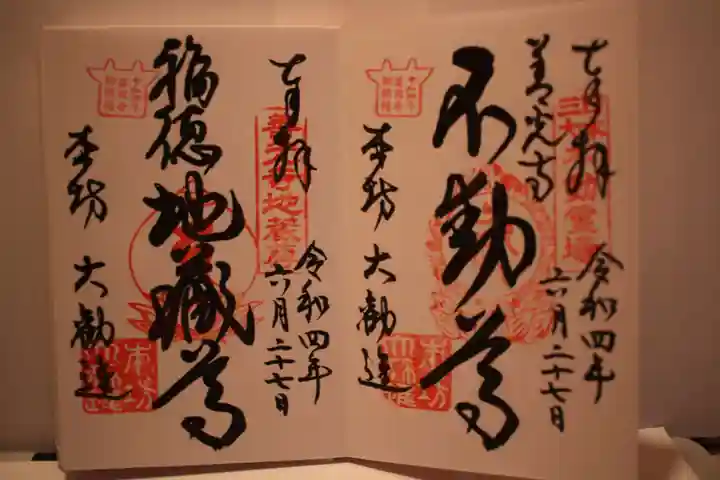 奉拝
善光寺
令和四年
六月二十七日
不動尊
本坊 大勧進
奉拝
令和四年
六月二十七日
福徳地蔵尊
本坊 大勧進